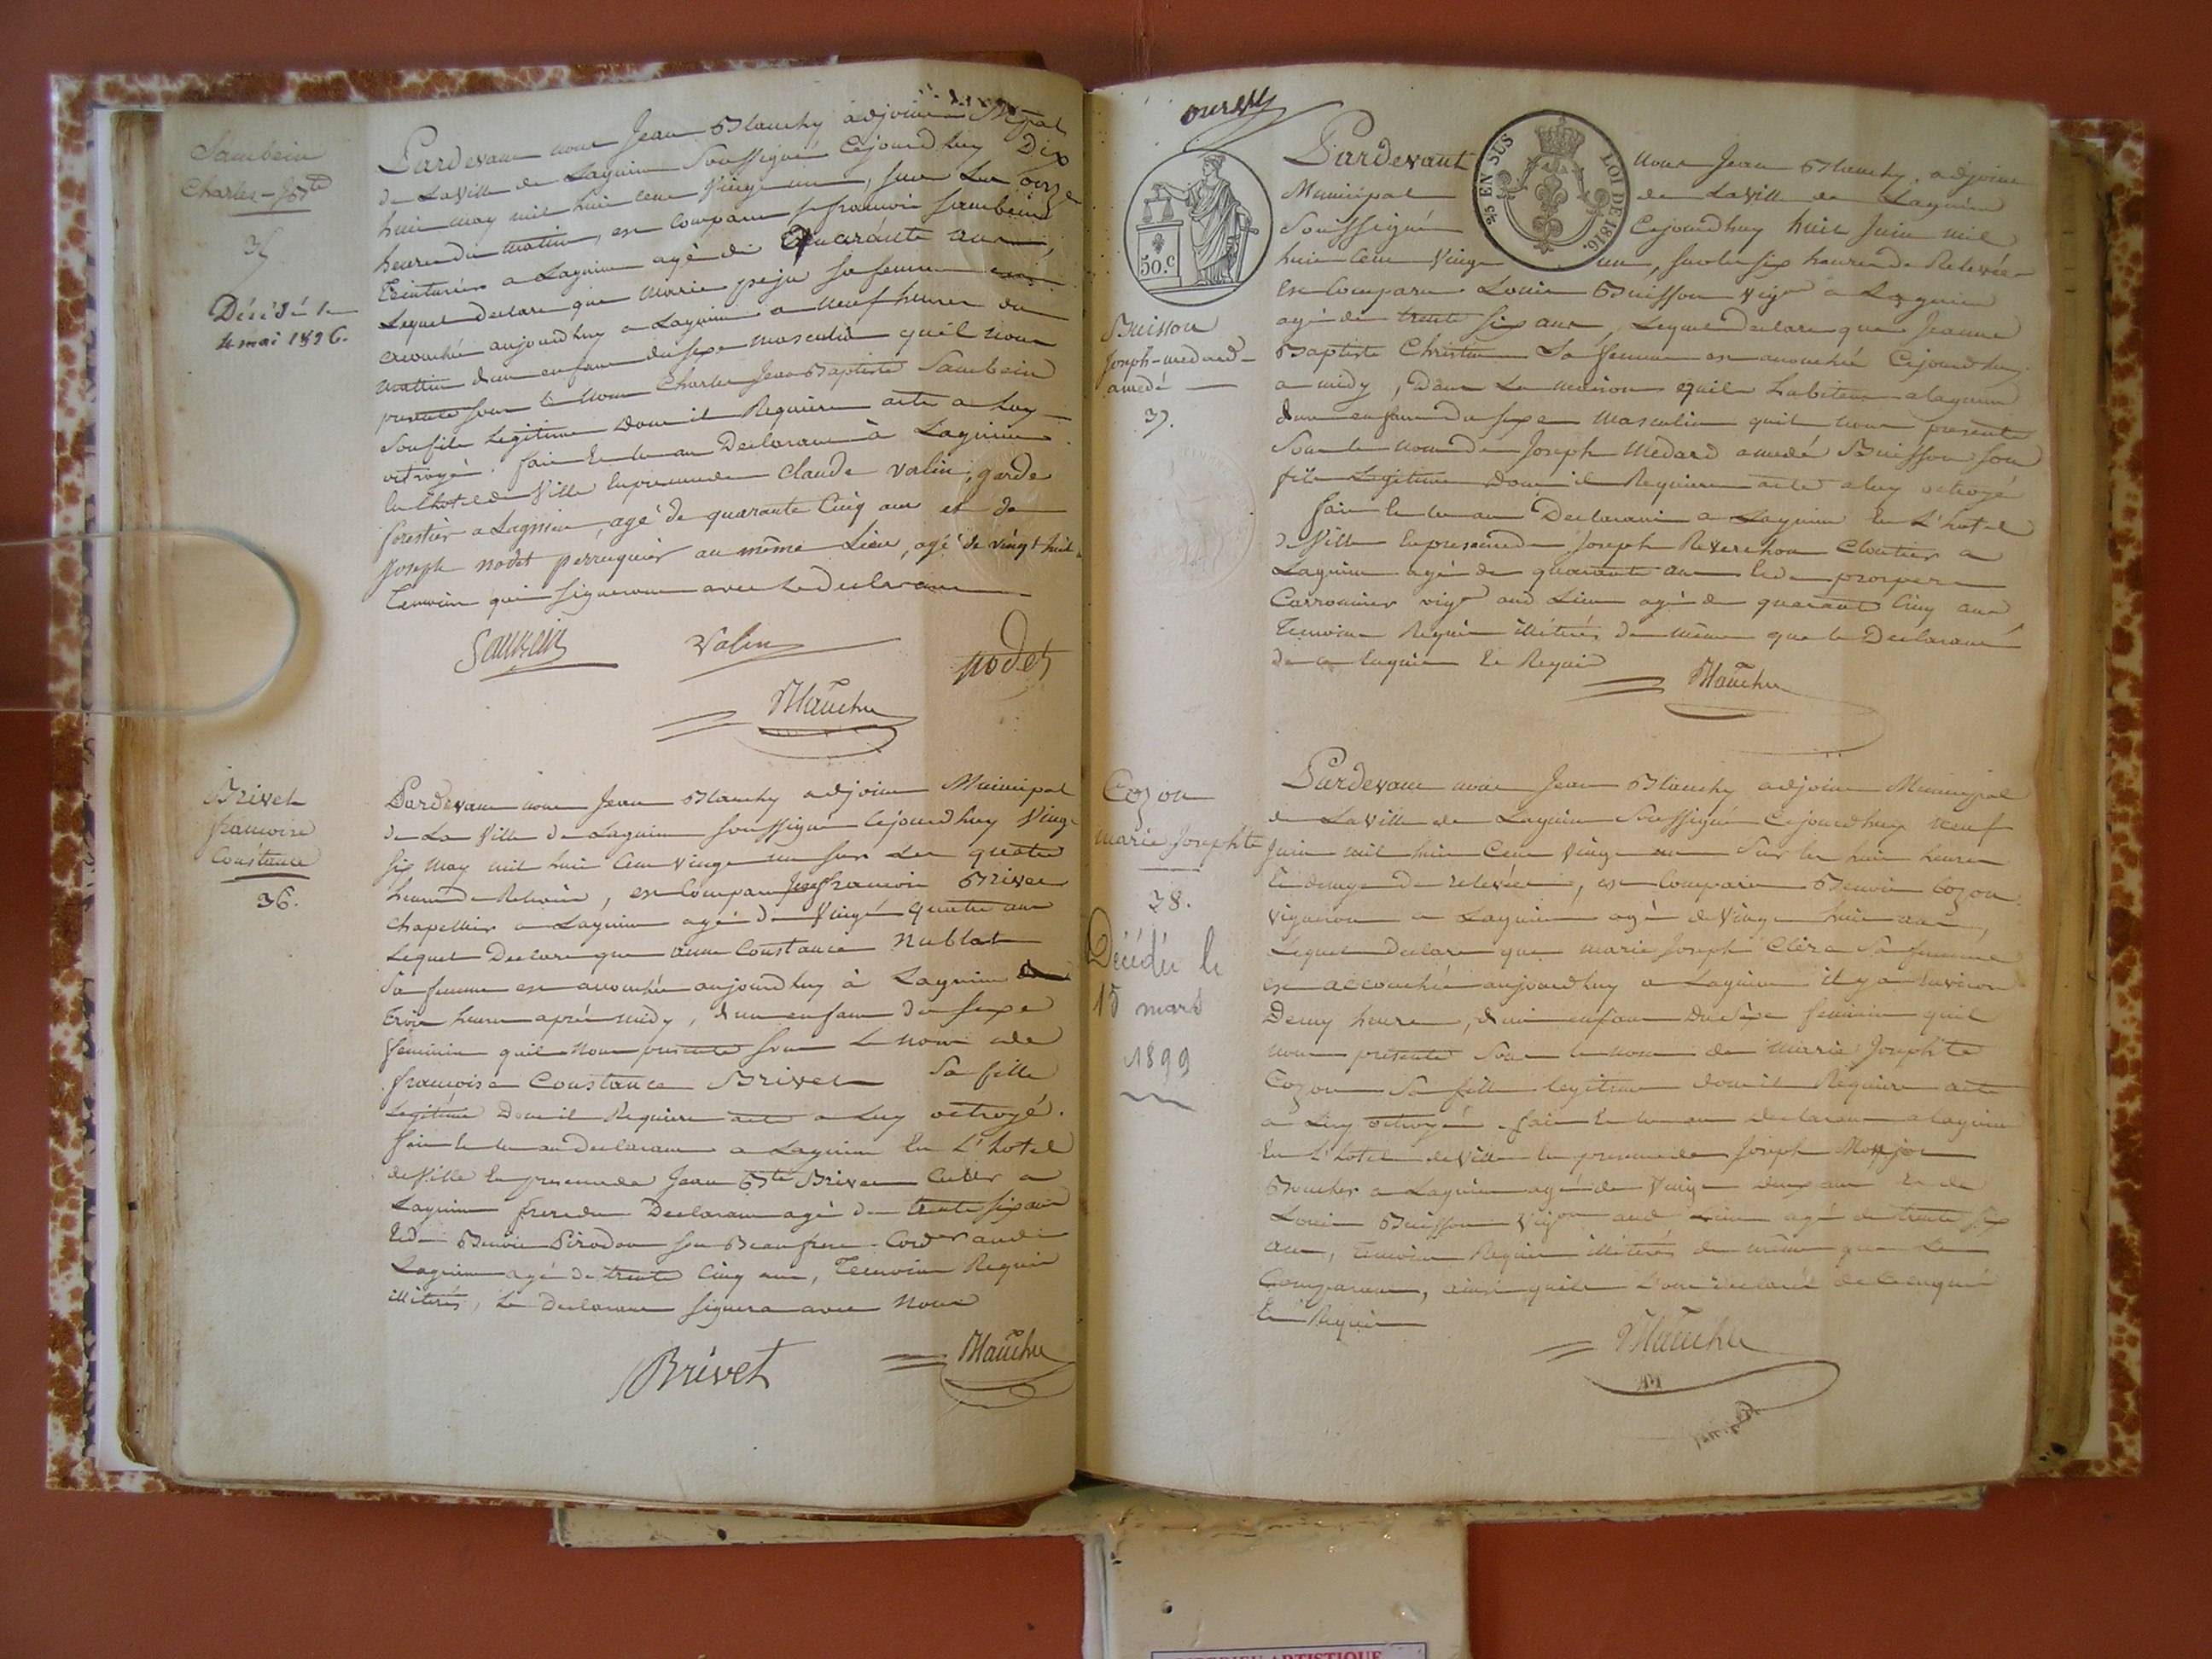 Sambein
Charles-Jn Bte
35
Décédé le
4 mai 1896.
Pardevant nous Jean Blanchy adjoint Mpal
de La Ville de Lagnieu Soussigné Cejourdhuy Dix
huit may mil huit cent vingt un, sur Les onze
heures du matin, est Comparu françois Sambein
Teinturier a Lagnieu agé de Quarante ans,
Lequel declare que Marie sa femme est
accouchée aujourdhuy a Lagnieu a neuf heures du
mattin d'un enfant du sexe masculin quil nous
presente sous le Nom Charles Jean Baptiste Sambein
Son fils Legitime Dont il Requiere acte a Luy
octroyé. fait et lu au Declarant à Lagnieu
En l'hotel de Ville En presence de Claude Valin, garde
forestier a Lagnieu, agé de quarante Cinq ans et de
Joseph nodet perruquier au même Lieu, agé de vingt huit
Temoins qui signeront avec Le declarant
Sambein Valin nodet
Blanchy
Brivet
françoise
Constance
36.
Pardevant nous Jean Blanchy adjoint Municipal
de La Ville de Lagnieu soussigné Cejourdhuy Vingt
six May mil huit Cent vingt un sur Les quatre
heures de Relevée, est Comparu françois Brivet
Chapellier a Lagnieu agé de Vingt quatre ans
Lequel Declare que anne Constance Nublat
Sa femme est accouchée aujourdhuy à Lagnieu
trois heures aprés midy, d'un enfant du sexe
feminin quil Nous presente sous Le nom de
françoise Constance Brivet Sa fille
Legitime Dont il Requiere acte a Luy octroyé.
fait et lu au Declarant a Lagnieu En L'hotel
de Ville En presence de Jean Bte Brivet a
Lagnieu frere du Declarant agé de trente six ans
Et de Benoit Pirodon son Beaufrere Cordr audit
Lagnieu agé de trente Cinq ans, Temoins Requis
illiterés, Le Declarant signera avec Nous
Brivet Blanchy
50.c
2/5 EN SUS
LOI DE 1816.
Buisson
Joseph-medard-
amedé
37.
Pardevant Nous Jean Blanchy adjoint
Municipal de La Ville de Lagnieu
Soussigné Cejourdhuy huit Juin mil
huit Cent Vingt un, sur les six heures de Relevée
est Comparu Louis Buisson Vign a Lagnieu
agé de trente six ans, Lequel Declare que Jeanne
Baptiste Christin Sa femme est accouchée Cejourdhuy
a midy, Dans La maison quils habitent a Lagnieu
d'un enfant Du sexe Masculin quil nous presente
Sous le nom de Joseph Medard amedé Buisson son
fils Legitime Dont il Requiere acte a luy octroyé
fait et lu au Declarant a Lagnieu En L'hotel
de Ville En presence de Joseph Reverchon Cloutier a
Lagnieu agé de quarante ans Et de prosper
Carronnier vign aud Lieu agé de quarante Cinq ans
Temoins Requis illiterés de même que le Declarant
de ce Enquis Et Requis
Blanchy
Cozon
marie Josephte
38.
Décédée le
15 mars
1899
Pardevant nous Jean Blanchy adjoint Municipal
de La Ville de Lagnieu Soussigné Cejourdhuy neuf
Juin mil huit Cent Vingt un Sur les huit heures
Et demye De relevée, est Comparu Benoit Cozon
Vigneron a Lagnieu agé de Vingt huit ans,
Lequel Declare que marie Joseph Clère Sa femme
est accouchée aujourdhuy a Lagnieu il y a Environ
Demy heure, d'un enfant Du sexe feminin quil
nous presente Sous le nom de Marie Josephte
Cozon Sa fille legitime dont il Requiere acte
a Luy octroyé. fait et lu au Declarant a Lagnieu
En L'hotel de Ville En presence de Joseph
Boucher a Lagnieu agé de Vingt deux ans Et de
Louis Buisson Vigon aud Lieu agé de trente six
ans, Temoins Requis illiterés de même que Le
Comparant, ainsi quils L'ont declaré de Ce enquis
Et Requis
Blanchy